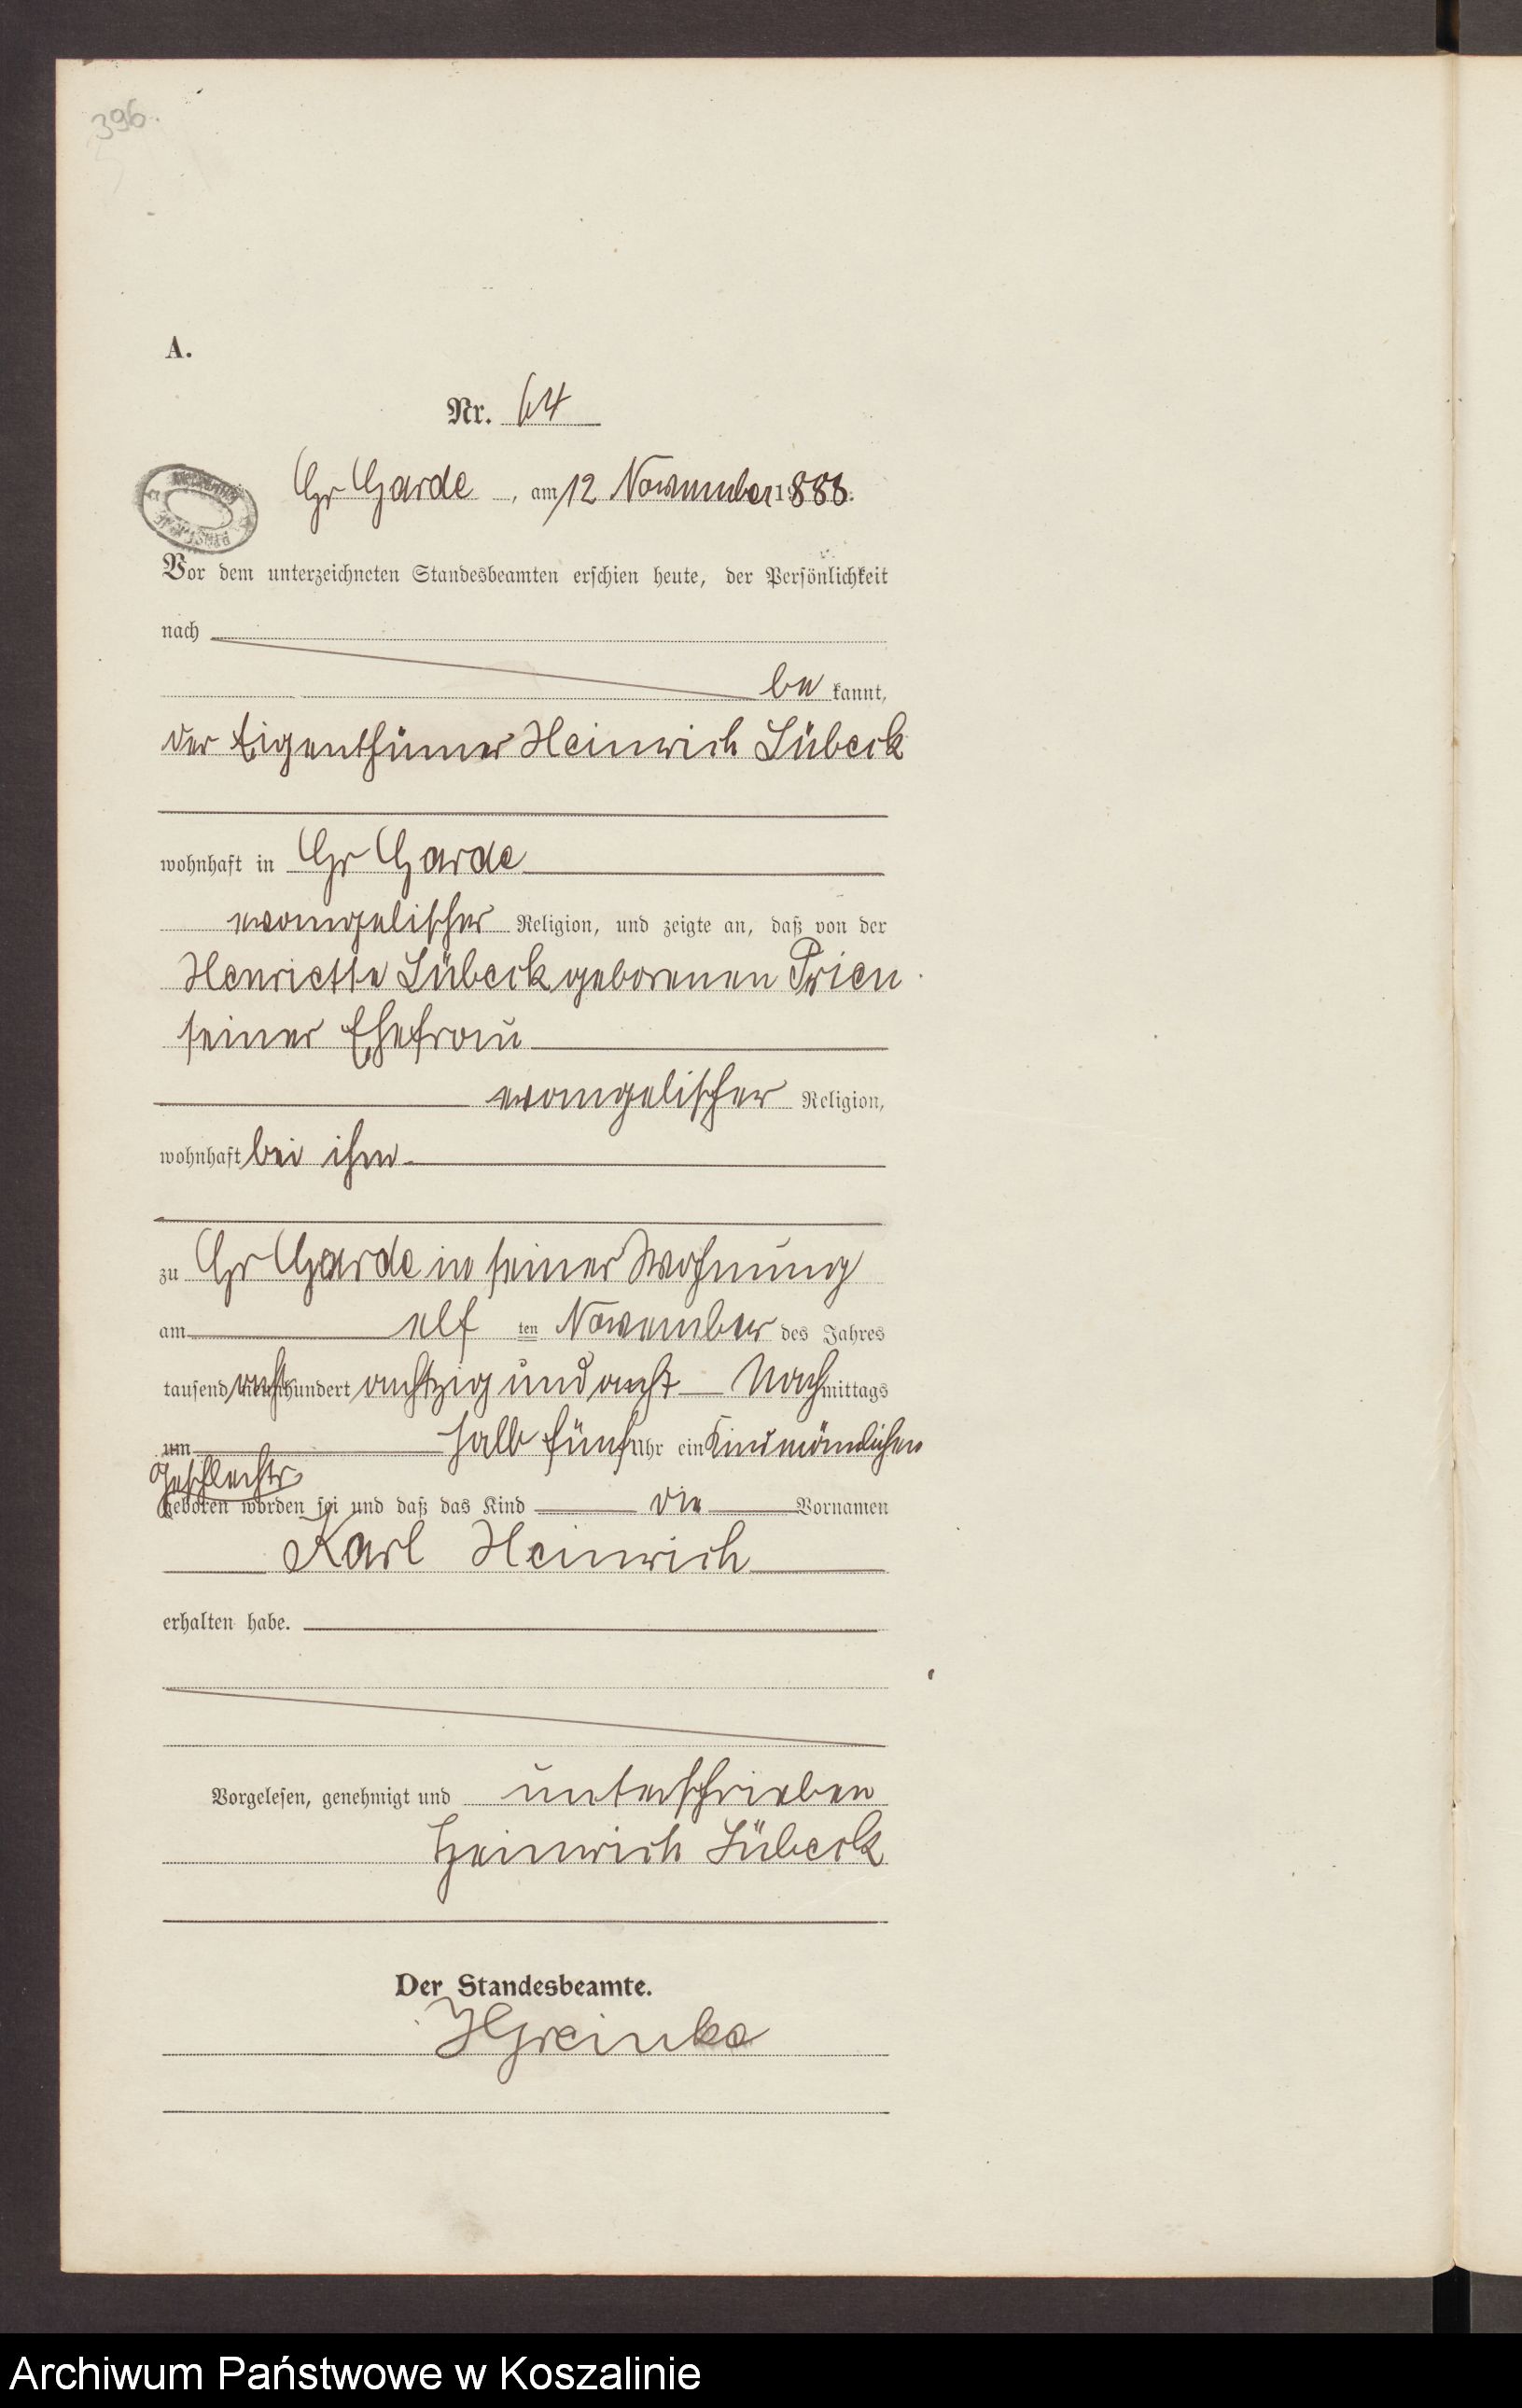 396.
A.
Nr. 64
Gr Garde, am 12 November 1888.
Vor dem unterzeichneten Standesbeamten erschien heute, der Persönlichkeit
nach
be kannt,
der Eigenthümer Heinrich Lübeck
wohnhaft in Gr Garde
evangelischer Religion, und zeigte an, daß von der
Henriette Lübeck geborenen Prien
seiner Ehefrau
evangelischer Religion,
wohnhaft bei ihm
zu Gr Garde in seiner Wohnung
am elf ten November des Jahres
tausend acht hundert achtzig und acht Nach mittags
um halb fünf Uhr ein Kind männlichen
Geschlechts
geboren worden sei und daß das Kind die Vornamen
Karl Heinrich
erhalten habe.
Vorgelesen, genehmigt und unterschrieben
Heinrich Lübeck
Der Standesbeamte.
Archiwum Państwowe w Koszalinie